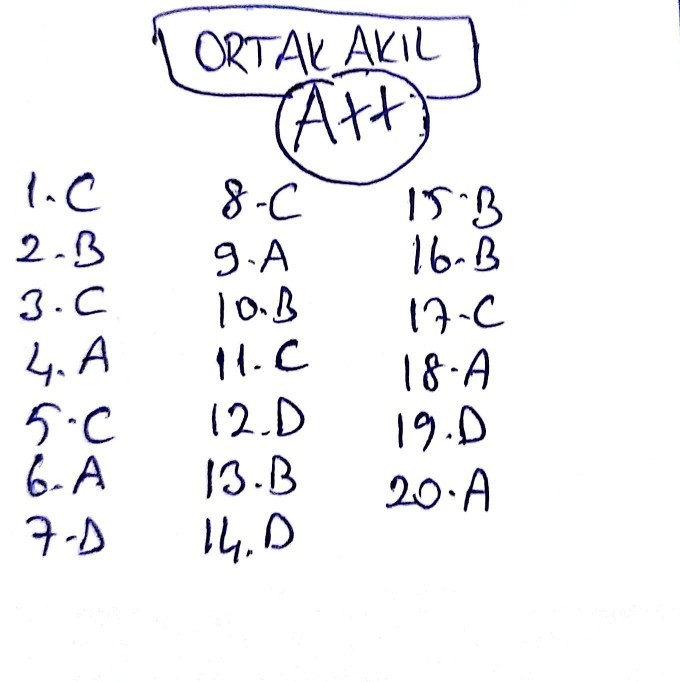 ORTAK AKIL
A++
1.C
2.B
3.C
4.A
5.C
6.A
7.D
8-C
9.A
10.B
11.C
12.D
13.B
14.D
15.B
16.B
17.C
18.A
19.D
20.A